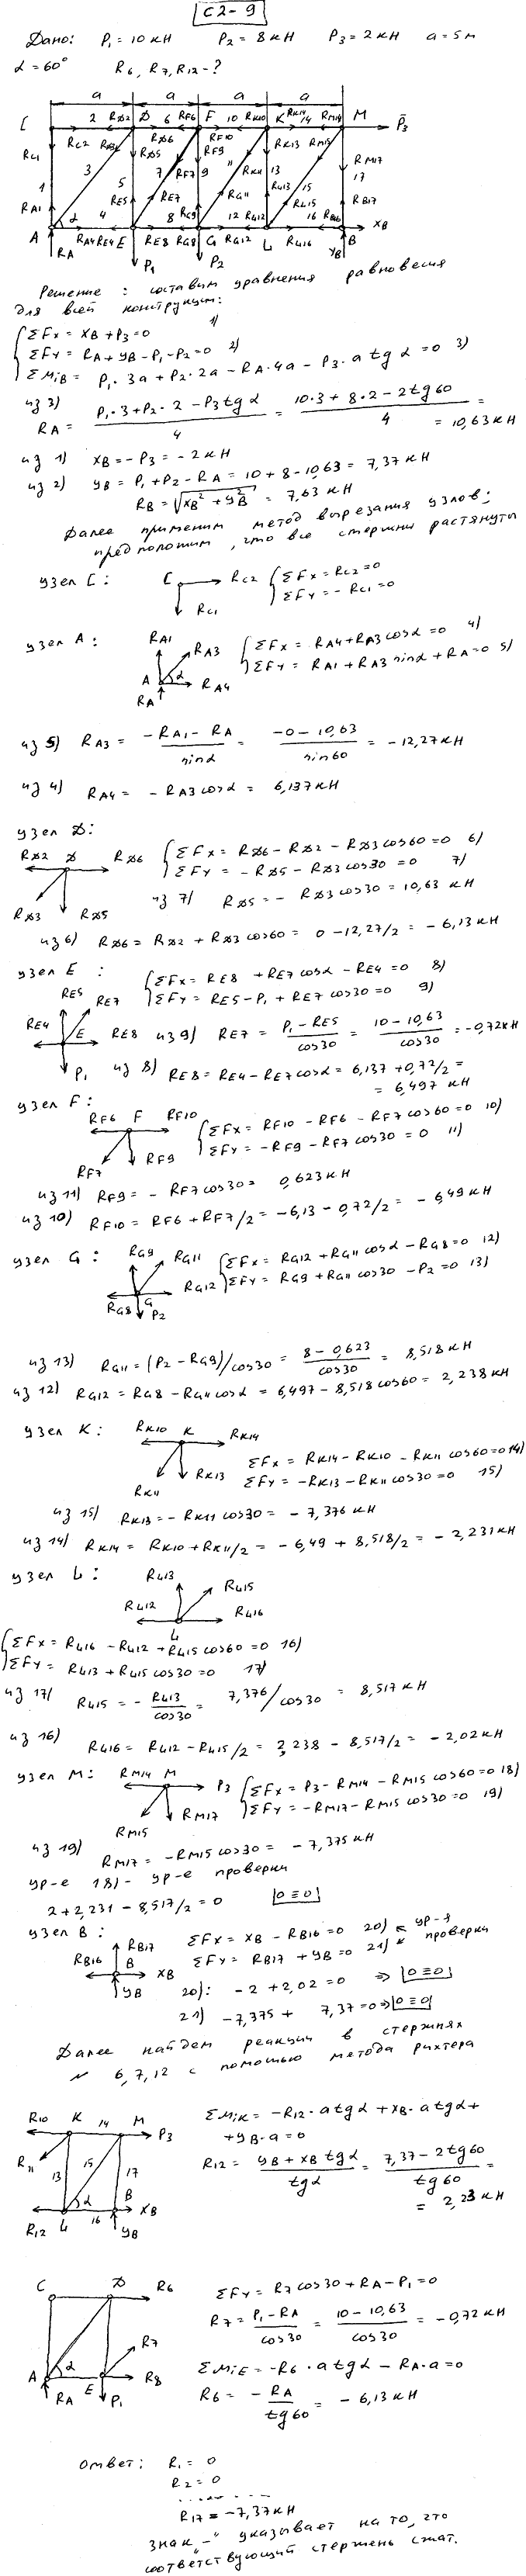 С2-9
Дано: P₁=10 кН P₂=8 кН P₃=2 кН a=5 м
α=60° R₆, R₇, R₁₂-?
a a a a
C 2 RD2 D 6 RF6 F 10 RK10 K RK14 14 RM14 M P̄₃
RC2 RD3 RD6 RF10
RC1 3 RD5 RF7 RF9 11 RK11 RK13 RM15 RM17
1 5 7 9 13 17
RA1 RE5 RE7 RG9 RG11 RL13 15 RL15 RB17
A α 4 8 12 RL12 16 RB16 XB
RA RA4 RE4 E RE8 RG8 G RG12 L RL16 YB B
P₁ P₂
Решение: составим уравнения равновесия
для всей конструкции:
ΣFx = XB + P₃ = 0 1)
ΣFy = RA + YB - P₁ - P₂ = 0 2)
ΣMiB = P₁·3a + P₂·2a - RA·4a - P₃·a tg α = 0 3)
из 3)
RA = (P₁·3 + P₂·2 - P₃ tg α)/4 = (10·3 + 8·2 - 2tg60)/4 =
= 10,63 кН
из 1) XB = -P₃ = -2 кН
из 2) YB = P₁ + P₂ - RA = 10 + 8 - 10,63 = 7,37 кН
RB = √(XB² + YB²) = 7,63 кН
Далее применим метод вырезания узлов:
предположим, что все стержни растянуты
узел C: C RC2 ΣFx = RC2 = 0
RC1 ΣFy = -RC1 = 0
узел A: RA1 RA3 ΣFx = RA4 + RA3 cosα = 0 4)
A α RA4 ΣFy = RA1 + RA3 sinα + RA = 0 5)
RA
из 5) RA3 = (-RA1 - RA)/sinα = (-0 - 10,63)/sin60 = -12,27 кН
из 4) RA4 = -RA3 cosα = 6,137 кН
узел D:
RD2 D RD6 ΣFx = RD6 - RD2 - RD3 cos60 = 0 6)
ΣFy = -RD5 - RD3 cos30 = 0 7)
RD3 RD5 из 7) RD5 = -RD3 cos30 = 10,63 кН
из 6) RD6 = RD2 + RD3 cos60 = 0 - 12,27/2 = -6,13 кН
узел E: ΣFx = RE8 + RE7 cosα - RE4 = 0 8)
RE5 RE7 ΣFy = RE5 - P₁ + RE7 cos30 = 0 9)
RE4 E RE8 из 9) RE7 = (P₁ - RE5)/cos30 = (10 - 10,63)/cos30 = -0,72 кН
P₁ из 8) RE8 = RE4 - RE7 cosα = 6,137 + 0,72/2 =
= 6,497 кН
узел F:
RF6 F RF10 ΣFx = RF10 - RF6 - RF7 cos60 = 0 10)
RF7 RF9 ΣFy = -RF9 - RF7 cos30 = 0 11)
из 11) RF9 = -RF7 cos30 = 0,623 кН
из 10) RF10 = RF6 + RF7/2 = -6,13 - 0,72/2 = -6,49 кН
узел G: RG9 RG11 ΣFx = RG12 + RG11 cosα - RG8 = 0 12)
RG8 G P₂ RG12 ΣFy = RG9 + RG11 cos30 - P₂ = 0 13)
из 13) RG11 = (P₂ - RG9)/cos30 = (8 - 0,623)/cos30 = 8,518 кН
из 12) RG12 = RG8 - RG11 cosα = 6,497 - 8,518 cos60 = 2,238 кН
узел K: RK10 K RK14
ΣFx = RK14 - RK10 - RK11 cos60 = 0 14)
RK11 RK13 ΣFy = -RK13 - RK11 cos30 = 0 15)
из 15) RK13 = -RK11 cos30 = -7,376 кН
из 14) RK14 = RK10 + RK11/2 = -6,49 + 8,518/2 = -2,231 кН
узел L: RL13 RL15
RL12 L RL16
ΣFx = RL16 - RL12 + RL15 cos60 = 0 16)
ΣFy = RL13 + RL15 cos30 = 0 17)
из 17) RL15 = -RL13/cos30 = 7,376/cos30 = 8,517 кН
из 16) RL16 = RL12 - RL15/2 = 2,238 - 8,517/2 = -2,02 кН
узел M: RM14 M P₃ ΣFx = P₃ - RM14 - RM15 cos60 = 0 18)
RM15 RM17 ΣFy = -RM17 - RM15 cos30 = 0 19)
из 19) RM17 = -RM15 cos30 = -7,375 кН
ур-е 18) - ур-е проверки
2 + 2,231 - 8,517/2 = 0 |0≡0|
узел B: RB17 ΣFx = XB - RB16 = 0 20) ← ур-я
RB16 B XB ΣFy = RB17 + YB = 0 21) ← проверки
YB 20): -2 + 2,02 = 0 ⇒ |0≡0|
21) -7,375 + 7,37 = 0 ⇒ |0≡0|
Далее найдем реакции в стержнях
№ 6, 7, 12 с помощью метода риттера
R10 K 14 M P₃ ΣMiK = -R12·a tg α + XB·a tg α +
+ YB·a = 0
R11 13 15 17 R12 = (YB + XB tg α)/tg α = (7,37 - 2tg60)/tg60 =
α B XB
R12 L 16 YB = 2,23 кН
C D R6 ΣFy = R7 cos30 + RA - P₁ = 0
R7 = (P₁ - RA)/cos30 = (10 - 10,63)/cos30 = -0,72 кН
R7
A α E R8 ΣMiE = -R6·a tg α - RA·a = 0
RA P₁ R6 = -RA/tg60 = -6,13 кН
ответ: R₁ = 0
R₂ = 0
..... ...
R₁₇ = -7,37 кН
знак „-" указывает на то, что
соответствующий стержень сжат.